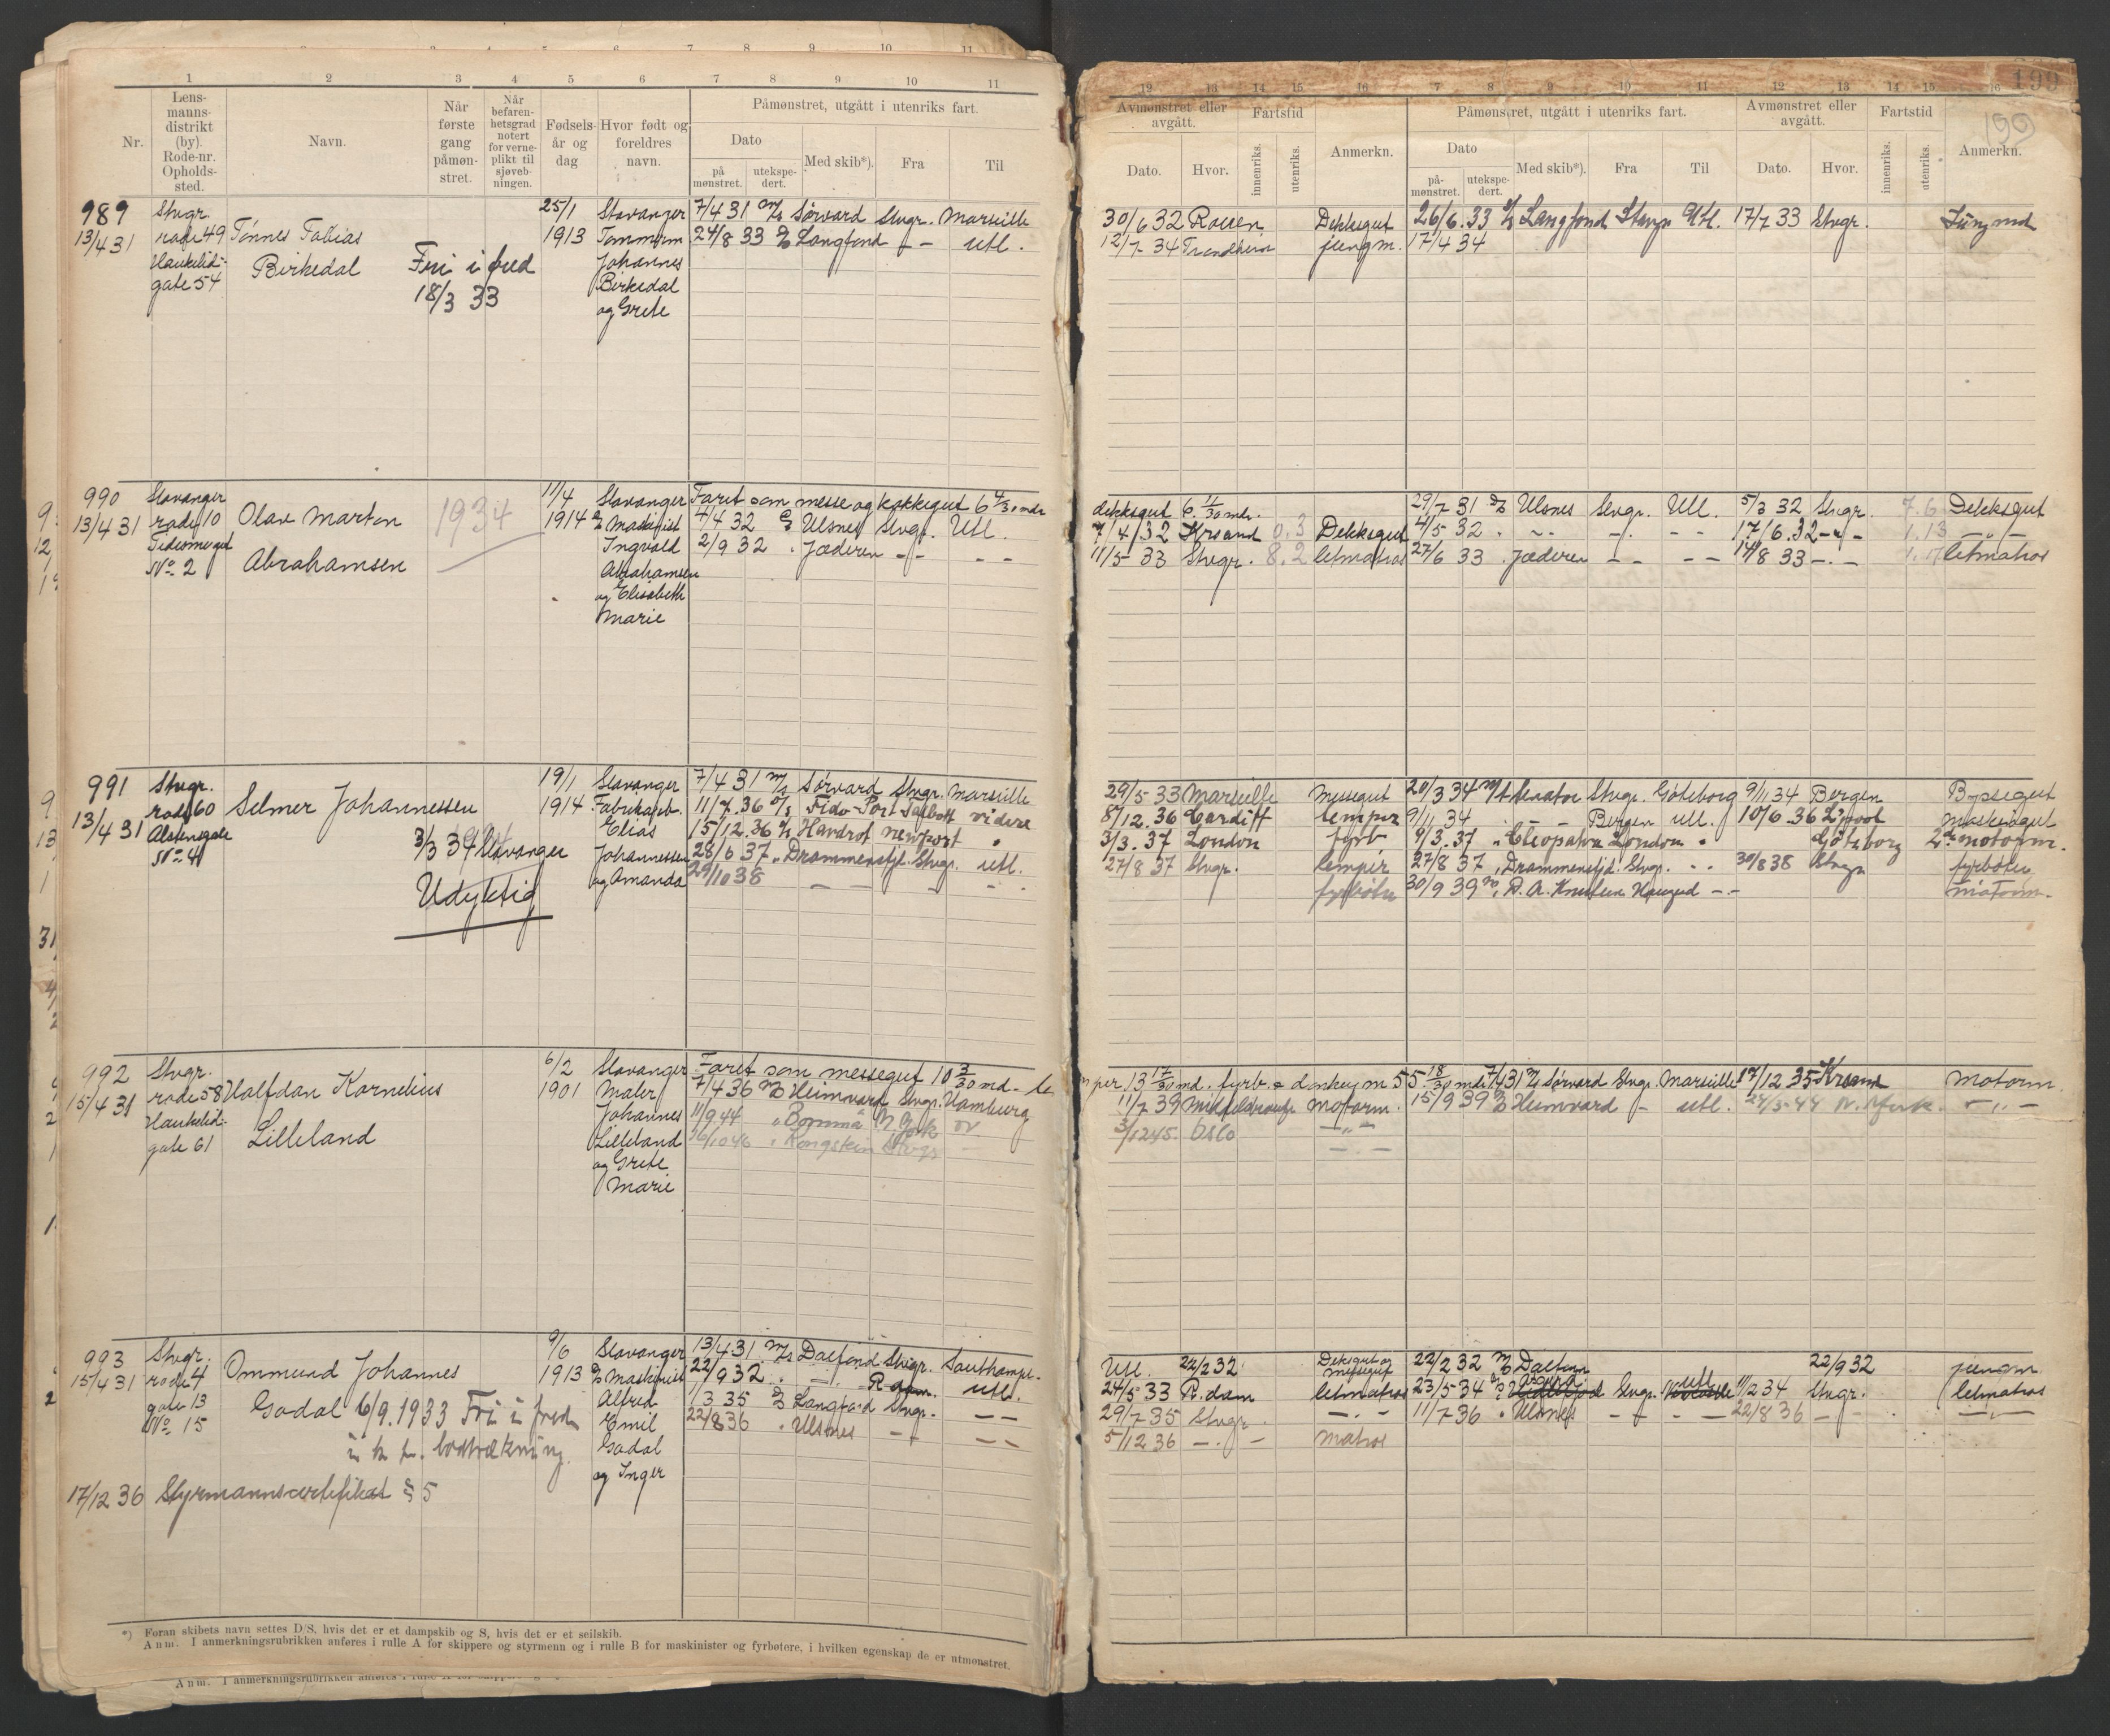 1 2 3 4 5 6 7 8 9 10 11
Nr. Lens-manns-distrikt (by). Rode-nr. Opholds-sted. Navn. Når første gang påmøn-stret. Når befaren-hetsgrad notert for verne-plikt til sjøveb-ningen. Fødsels-år og dag Hvor født og foreldres navn. Påmønstret, utgått i utenriks fart.
Dato Med skib*). Fra Til
på mønstret. utekspe-dert.
989 Stvgr. 25/1 Stavanger 7/4 31 M/s Sørvard Stvgr. Marseille
13/4 31 rode 49 Tønnes Tobias 1913 Tømmerm 24/8 33 D/s Langfond – utl.
Haukelid- Birkedal Fri i fred Johannes
gate 54 18/3 33 Birkedal
og Grete
990 Stavanger 11/4 Stavanger Faret som messe og kokkegut 6 4/30 mdr
13/4 31 rode 10 Olav Marton 1934 1914 Maskinist 4/4 32 D/s Ulsnes Stvgr. Utl.
No 2 Abrahamsen Ingvald 2/9 32 . Jæderen – –
Abrahamsen
og Elisabeth
Marie
991 Stvgr. 19/1 Stavanger 7/4 31 M/s Sørvard Stvgr. Marseille
13/4 31 rode 60 Selmer Johannessen 1914 Fabrikarb. 11/7.36 D/s Fido Port Talbott videre
No 41 3/3 34 Stavanger Elias 15/12.36 D/s Havdrot Newport "
Johannessen 28/6 37 " Drammensfj. Stvgr. utl.
Udyktig og Amanda 29/10 38 – – – –
992 Stvgr. 6/2 Stavanger Faret som messegut 10 3/30 md. le
15/4 31 rode 58 Halfdan Kornelius 1901 Maler 7/4 36 M/s Heimvard Stvgr. Hamburg
Haukelid- Johannes 11/9 44 " Bomma N. York ov
gate 61 Lilleland Lilleland 16/10 46 " Kongstein Stvgr –
og Grete
Marie
993 Stvgr. 9/6 Stavanger 13/4 31 M/s Dalfond Stvgr. Southampt.
15/4 31 rode 4 Ommund Johannes 1913 Maskinist 22/9 32 . – R.dam. utl.
gate 13 Godal 6/9.1933 Fri i fred Alfred 1/3 35 D/s Langfond Stvgr. – –
No 15 Emil 22/8 36 . Ulsnes – –
Godal
og Inger
17/12 36 Styrmannscertifikat § 5
*) Foran skibets navn settes D/S, hvis det er et dampskib og S, hvis det er et seilskib.
Anm. I anmerkningsrubrikken anføres i rulle A for skippere og styrmenn og i rulle B for maskinister og fyrbøtere, i hvilken egenskap de er utmønstret.
199
12 13 14 15 16 7 8 9 10 11 12 13 14 15 16
199
Avmønstret eller avgått. Fartstid Anmerkn. Påmønstret, utgått i utenriks fart. Avmønstret eller avgått. Fartstid Anmerkn.
Dato. Hvor. innenriks. utenriks. Dato Med skib*). Fra Til Dato. Hvor. innenriks. utenriks.
på-mønstret. utekspe-dert.
30/6 32 Rouen Dekksgut 26/6.33 D/s Langfond Stavgr Utl. 17/7 33 Stvgr. Jungmd
12/7-34 Trondheim jungm. 17/4 34
dekksgut 6. 11/30 mdr. 29/7 31 D/s Ulsnes Stvgr. Utl. 5/3 32 Stvgr. 7.6 Dekksgut
7/4/32 Krsand 0.3 Dekksgut 4/5 32 . – – – – 17/6.32 – 1.13 – " –
11/5-33 Stvgr. 8.2 letmatros 27/6 33 . Jæderen – – – – 14/8 33 – . – letmatros
29/5 33 Marseille Messegut 20/3 34 M/t Senator Stvgr. Göteborg 9/11 34 Bergen Byssegut
8/12.36 Cardiff lemper 9/11 34 . – Bergen utl. 10/6.36 L.pool
3/3.37 London fyrb. 9/3.37 " Cleopatra London " Göteborg 2den motorm.
27/8 37 Stvgr. lemper 27/8 37 " Drammensfjd. Stvgr. . . 30/8 38 Stvgr fyrbøter
fyrbøter 30/9 39 M/s. O. A. Knudsen Haugesd – – motorm.
mper 13 17/30 md. fyrb. & donkeym. 55 18/30 mdr 7/4 31 M/s Sørvard Stvgr. Marseille 17/12 35 Krsand motorm.
11/7 39 motorm. 15/9 39 M/s Heimvard – utl. 24/5-44 N. York. – " –
3/12 45. Oslo – " –
– . –
Utl. 22/2 32 Deksgut og messegut 22/2 32 M/s Dalfonn 22/9 32 jungm
24/5 33 R.dam letmatros 23/5 34 Stvgr. utl 11/2 34 Stvgr. letmatros
29/7 35 Stvgr. – . – 11/7-36 . Ulsnes – – – 22/8 36 – – . –
5/12 36 – . – matros